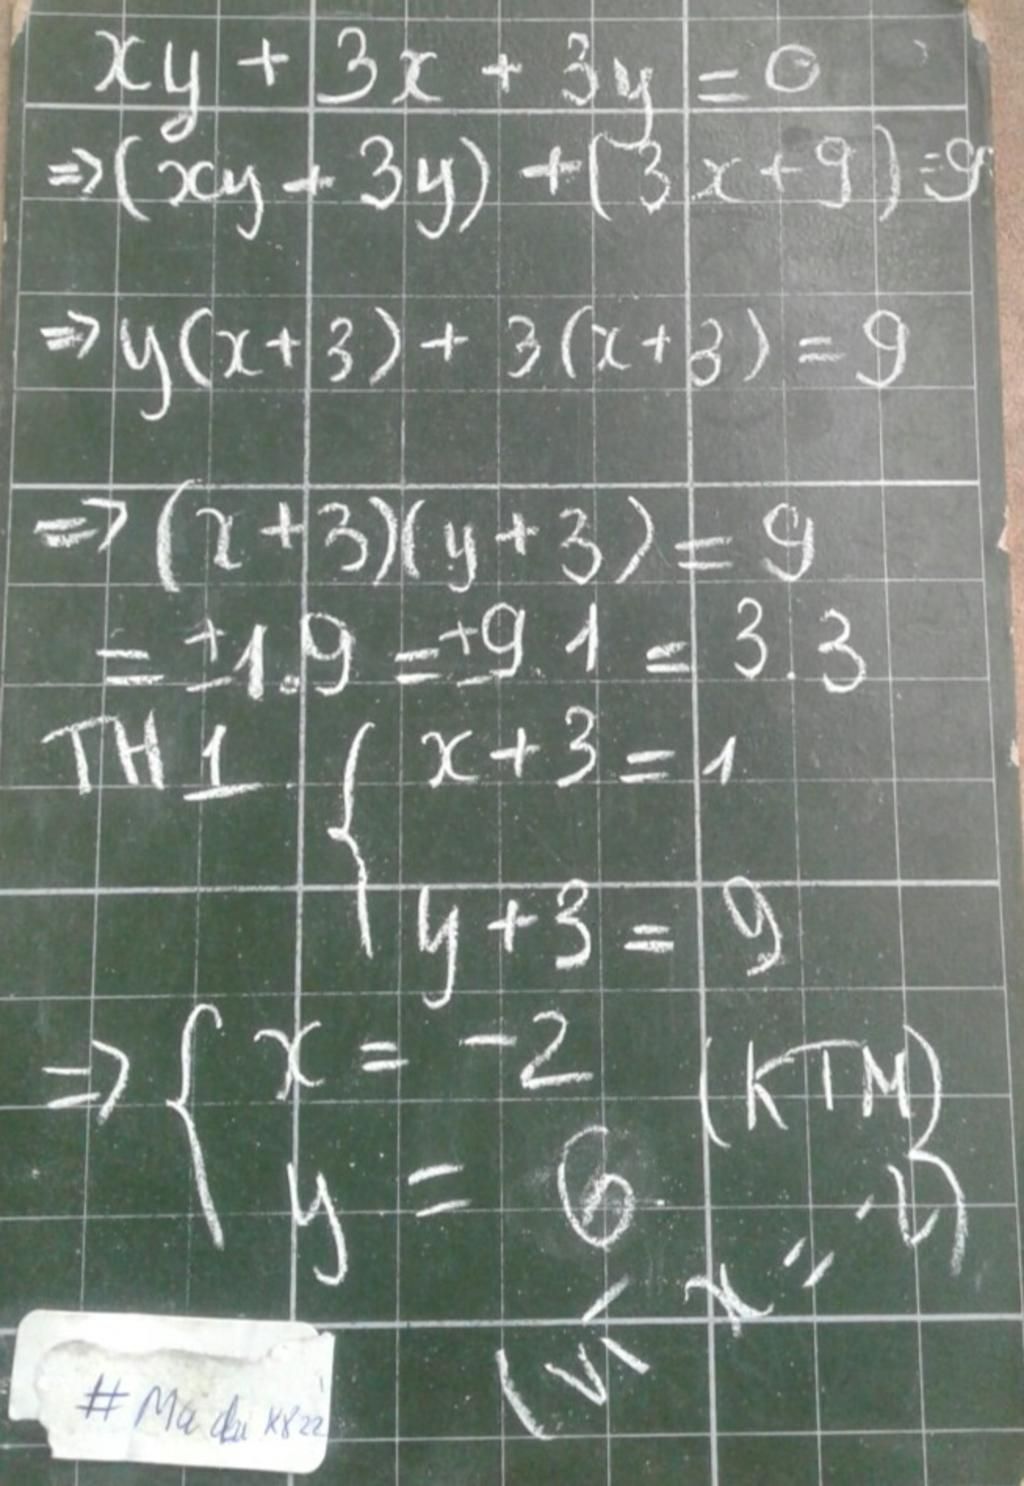 xy + 3x + 3y = 0
=> (xy + 3y) + (3x + 9) = 9
=> y(x + 3) + 3(x + 3) = 9
=> (x + 3)(y + 3) = 9
= ±1.9 = ±9.1 = 3.3
TH 1 { x + 3 = 1
y + 3 = 9
=> { x = -2 (KTM)
y = 6
(vì x = -2)